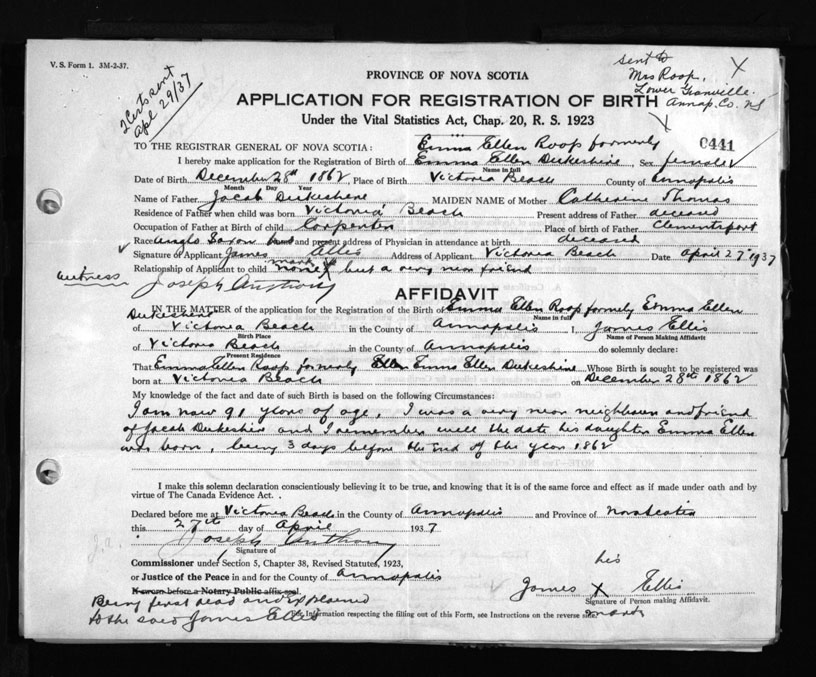 V. S. Form 1. 3M-2-37.
2 Certs sent
Apl 29/37
sent to
Mrs Roop,
Lower Granville.
Annap. Co. NS
X
PROVINCE OF NOVA SCOTIA
APPLICATION FOR REGISTRATION OF BIRTH
Under the Vital Statistics Act, Chap. 20, R. S. 1923
0441
TO THE REGISTRAR GENERAL OF NOVA SCOTIA: Emma Ellen Roop formerly
I hereby make application for the Registration of Birth of Emma Ellen Dukeshire, Sex female
Name in full
Date of Birth December 28th 1862, Place of Birth Victoria Beach County of Annapolis
Month Day Year
Name of Father Jacob Dukeshire MAIDEN NAME of Mother Catherine Thomas
Residence of Father when child was born Victoria Beach Present address of Father deceased
Occupation of Father at Birth of Child Carpenter Place of birth of Father Clementsport
Race Anglo Saxon and present address of Physician in attendance at birth deceased
Signature of Applicant James Ellis Address of Applicant Victoria Beach Date April 27th 1937
mark
Relationship of Applicant to child none X but a very near friend
witness
Joseph Anthony
AFFIDAVIT
IN THE MATTER of the application for the Registration of the Birth of Emma Ellen Roop formerly Emma Ellen
Name in full
Dukeshire
of Victoria Beach in the County of Annapolis I, James Ellis
Birth Place Name of Person Making Affidavit
of Victoria Beach in the County of Annapolis do solemnly declare:
Present Residence
That Emma Ellen Roop formerly Emma Ellen Dukeshire Whose Birth is sought to be registered was
born at Victoria Beach on December 28th 1862
My knowledge of the fact and date of such Birth is based on the following Circumstances:
I am now 91 years of age, I was a very near neighbour and friend
of Jacob Dukeshire and I remember well the date his daughter Emma Ellen
was born, being 3 days before the End of the year 1862
I make this solemn declaration conscientiously believing it to be true, and knowing that it is of the same force and effect as if made under oath and by
virtue of The Canada Evidence Act.
Declared before me at Victoria Beach in the County of Annapolis and Province of Nova Scotia
this 27th day of April 1937
Joseph Anthony
Signature of
Commissioner under Section 5, Chapter 38, Revised Statutes, 1923,
or Justice of the Peace in and for the County of Annapolis
If sworn before a Notary Public affix seal.
his
James X Ellis
Signature of Person making Affidavit.
mark
Being first read and explained
to the said James Ellis
For Information respecting the filling out of this Form, see Instructions on the reverse side.